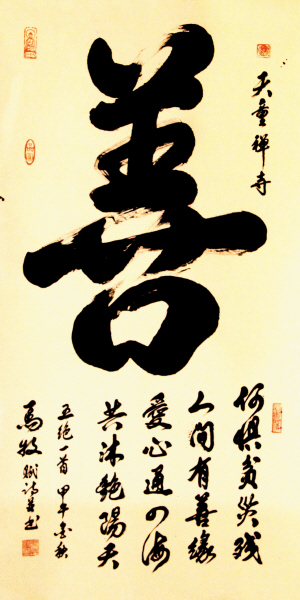 天童禪寺
善
何惧贫災残
人间有善缘
愛心通四海
共沐艳陽天
五绝一首 甲午金秋
馬牧赋诗并书